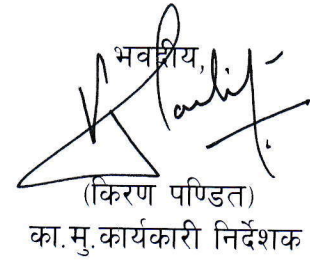 भवदीय,
(किरण पण्डित)
का.मु.कार्यकारी निर्देशक